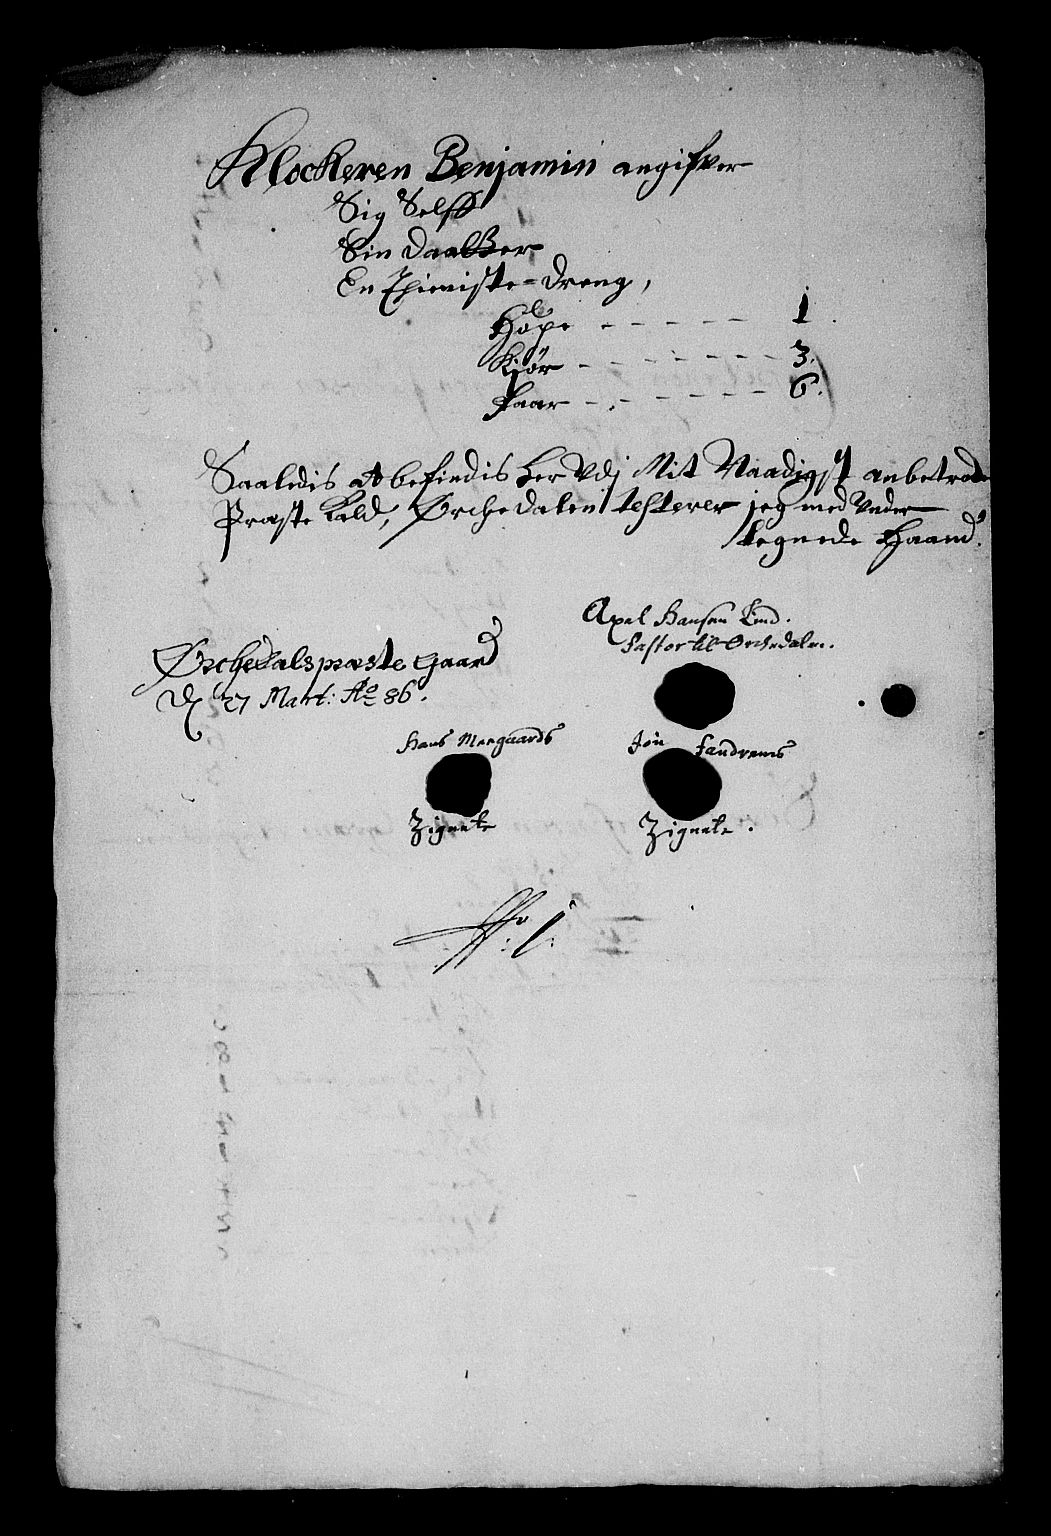 Klockeren Benjamin angifver
Sig Selff
Sin Daatter
En Thieniste-Dreng,
Høpe - - - - - - 1.
Kiør - - - - - - 3.
Faar - - - - - - 6.
Saaledis at befindis her Vdj Mit Naadigst anbetrode
Præste Kald, Ørchedalen testerer jeg med Under
tegnede Haand.
Axel Hansen Lind.
Pastor til Orchedalen.
Ørchedals præste Gaard
D 27 Mart: Ao 86.
Hans Moegaards
Jön Fandrems
Zignete
Zignete.